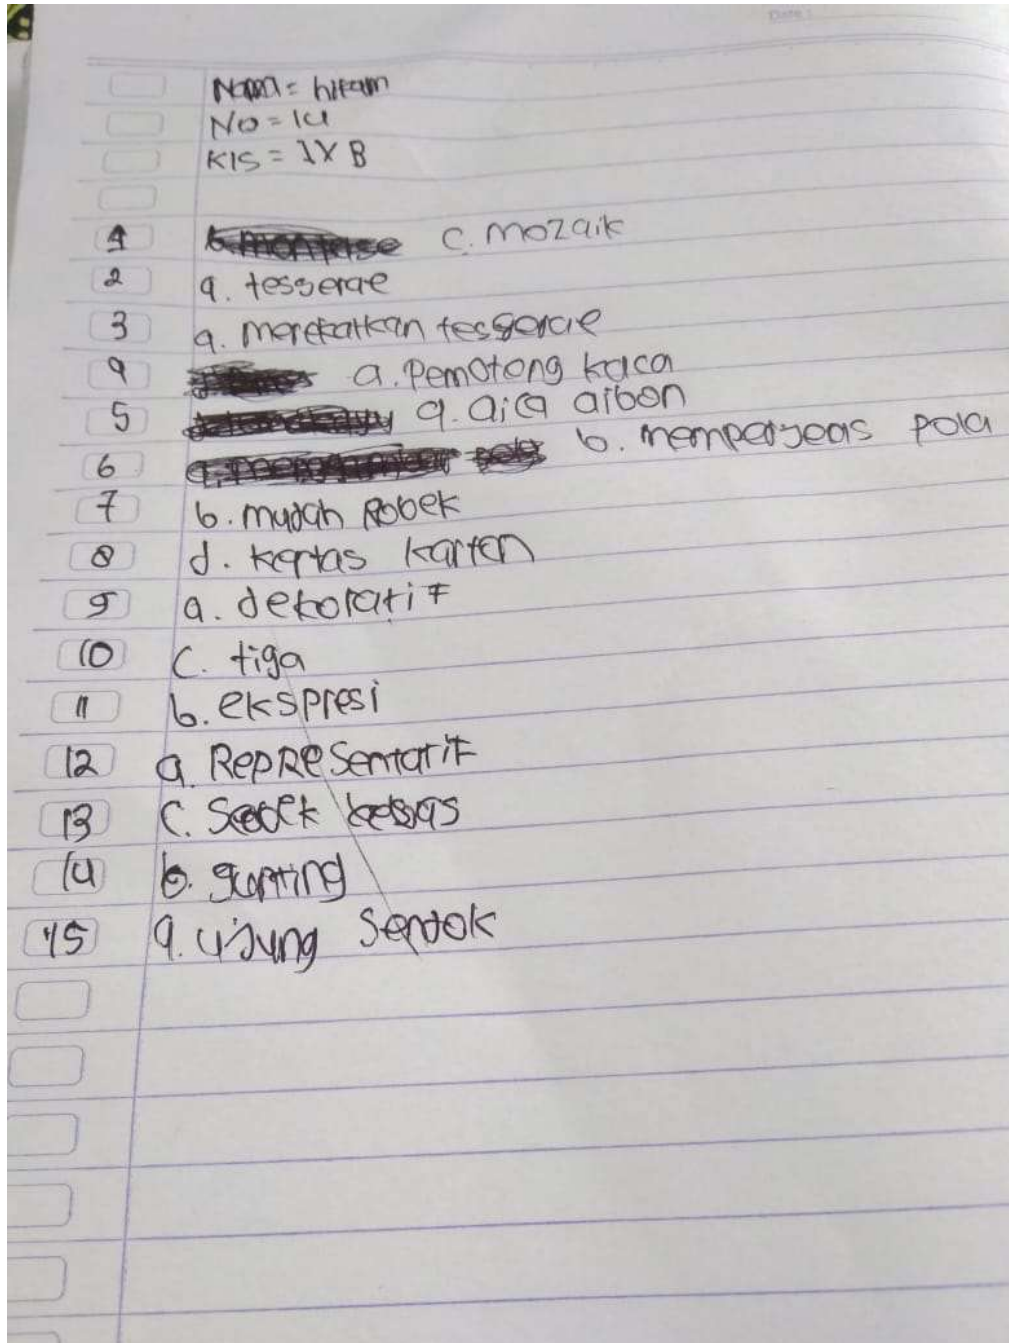 Date :
Nama = hitam
No = 14
Kls = IX B
1 c. mozaik
2 a. tesserae
3 a. merekatkan tesserae
4 a. Pemotong kaca
5 a. aica aibon
6 b. memperjeas pola
7 b. mudah Robek
8 d. kertas karton
9 a. dekoratif
10 C. tiga
11 b. ekspresi
12 a. RepResentatif
13 C.
14 b. gunting
15 a. ujung Sendok